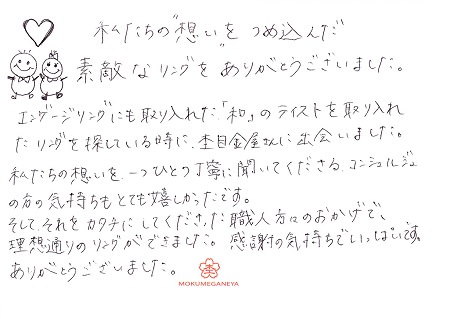 私たちの"想い"を つめ込んだ
素敵な リングを ありがとうございました。
エンゲージリングにも取り入れた「和」のテイストを取り入れ
たリングを探している時に、杢目金屋さんに出会いました。
私たちの想いを、一つひとつ丁寧に聞いてくださる、コンシェルジュ
の方の気持ちもとても嬉しかったです。
そして、それをカタチにしてくださった職人方々のおかげで、
理想通りのリングができました。感謝の気持ちでいっぱいです。
ありがとうございました。
MOKUMEGANEYA